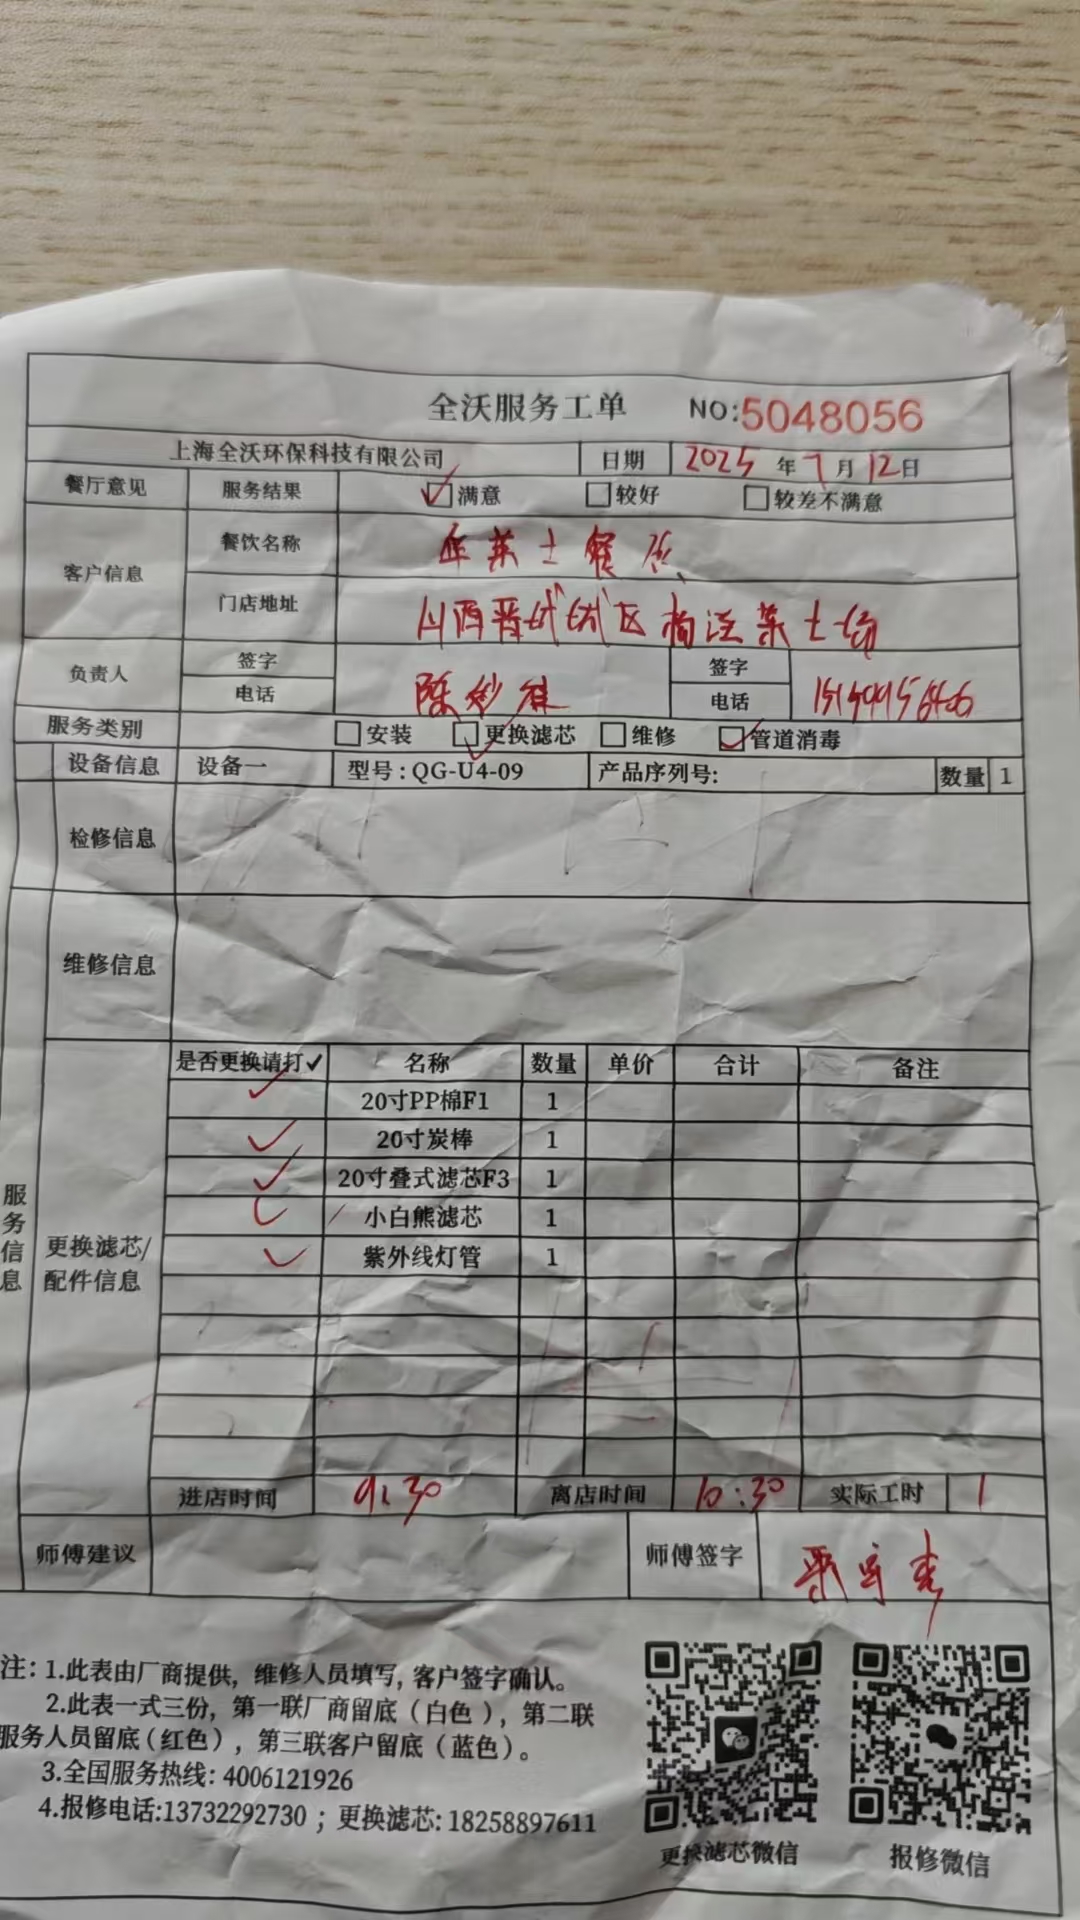 全沃服务工单 NO:5048056
上海全沃环保科技有限公司 日期 2025年7月12日
餐厅意见 服务结果 满意 较好 较差不满意
客户信息 餐饮名称 士餐店
门店地址 山西晋城城区
负责人 签字 陈 签字
电话 电话
服务类别 安装 更换滤芯 维修 管道消毒
设备信息 设备一 型号:QG-U4-09 产品序列号: 数量 1
检修信息
维修信息
服务信息
更换滤芯/
配件信息
是否更换请打✓ 名称 数量 单价 合计 备注
✓ 20寸PP棉F1 1
✓ 20寸炭棒 1
✓ 20寸叠式滤芯F3 1
✓ 小白熊滤芯 1
✓ 紫外线灯管 1
进店时间 9:30 离店时间 10:30 实际工时 1
师傅建议 师傅签字
注: 1.此表由厂商提供, 维修人员填写, 客户签字确认。
2.此表一式三份, 第一联厂商留底 (白色), 第二联
服务人员留底 (红色), 第三联客户留底 (蓝色)。
3.全国服务热线: 4006121926
4.报修电话:13732292730 ; 更换滤芯: 18258897611
更换滤芯微信 报修微信